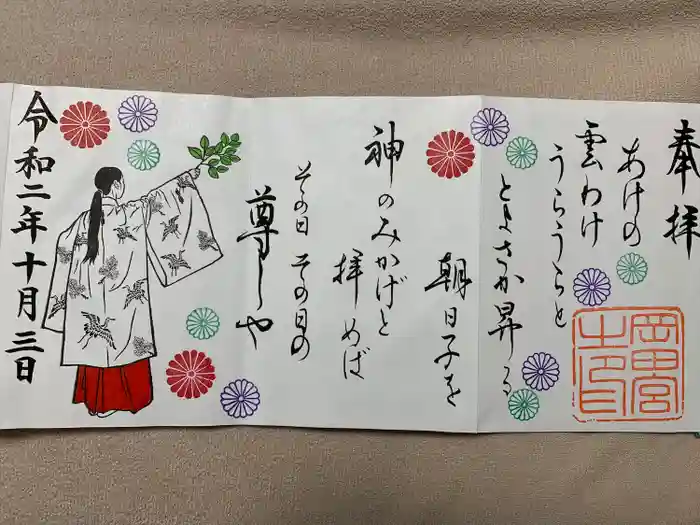 奉拝
あけの
雲わけ
うらうらと
岡田宮
之印
とよさか昇る
朝日子を
神のみかげと
拝めば
その日 その日の
尊しや
令和二年十月三日